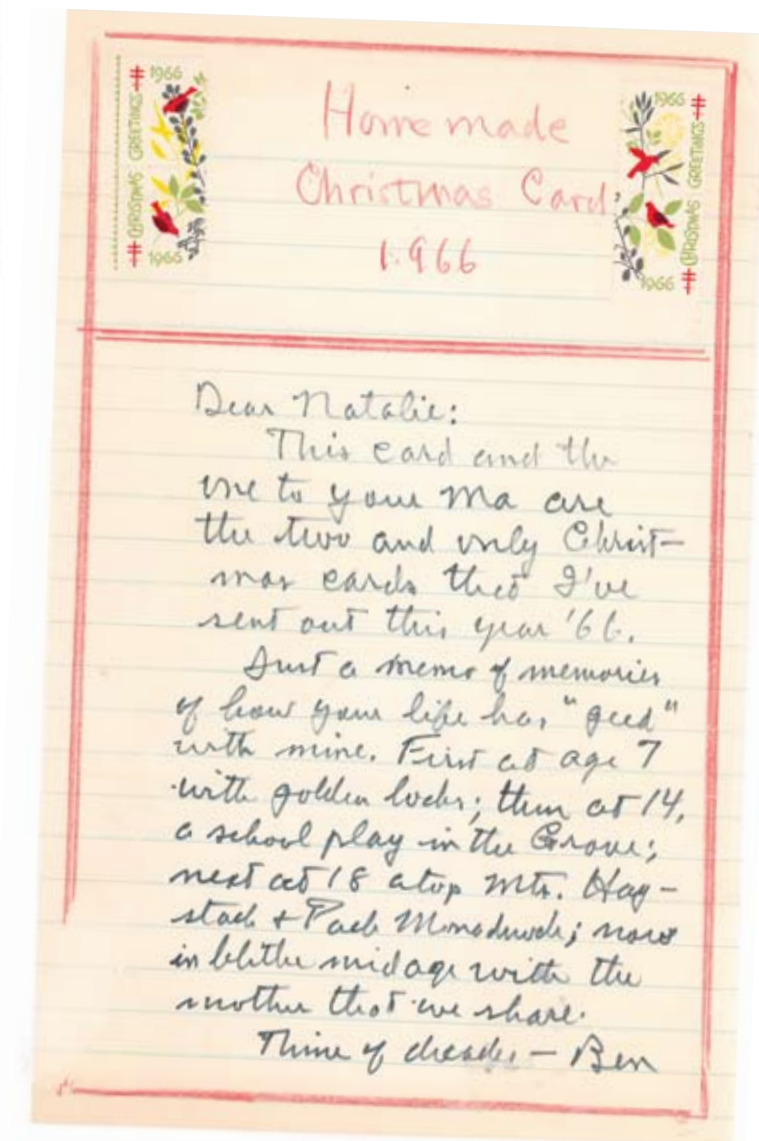 1966
CHRISTMAS GREETINGS
1966
Home made
Christmas Card
1966
1966
CHRISTMAS GREETINGS
1966
Dear Natalie:
This card and the
one to your Ma are
the two and only Christ-
mas cards that I've
sent out this year '66.
Just a memo of memories
of how your life has "geed"
with mine. First at age 7
with golden locks; then at 14,
a school play in the Grove;
next at 18 atop Mts. Hay-
stack & Pack Monadnock; now
in blithe midage with the
mother that we share.
Thine of decades — Ben